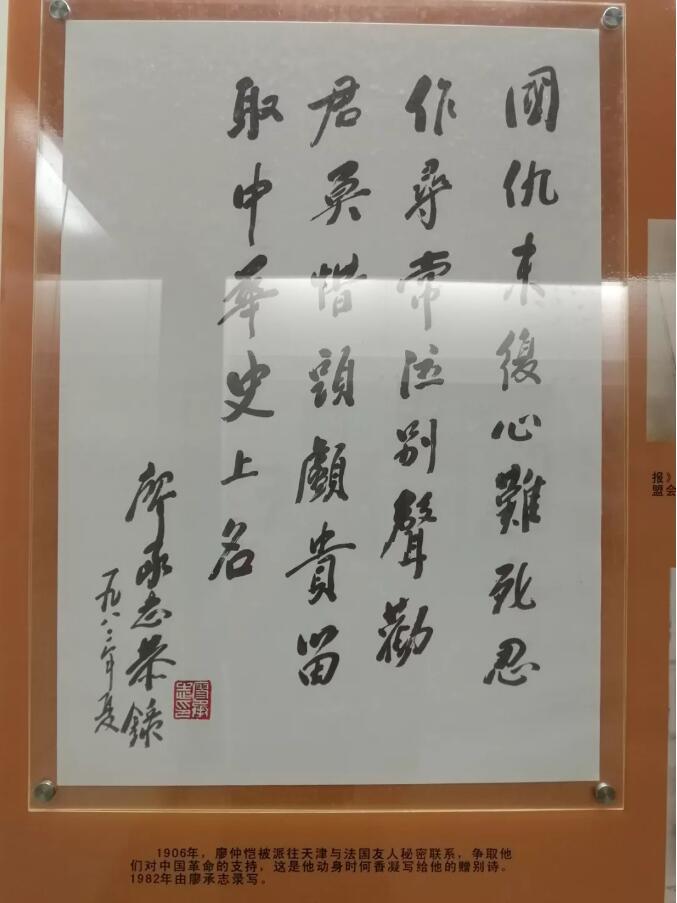 國仇未復心難死忍
作尋常泣別聲勸
君莫惜頭顱貴留
取中華史上名
廖承志恭錄
一九八二年夏
廖承志印
1906年，廖仲恺被派往天津与法国友人秘密联系，争取他
们对中国革命的支持，这是他动身时何香凝写给他的赠别诗。
1982年由廖承志录写。
报》
盟会